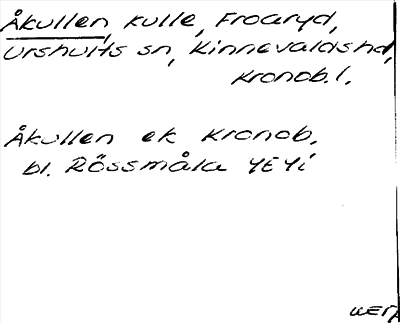 Åkullen, kulle, Froaryd,
Urshults sn, Kinnevaldshd,
Kronob.l.
Åkullen ek Kronob.
bl. Rössmåla 4E4i